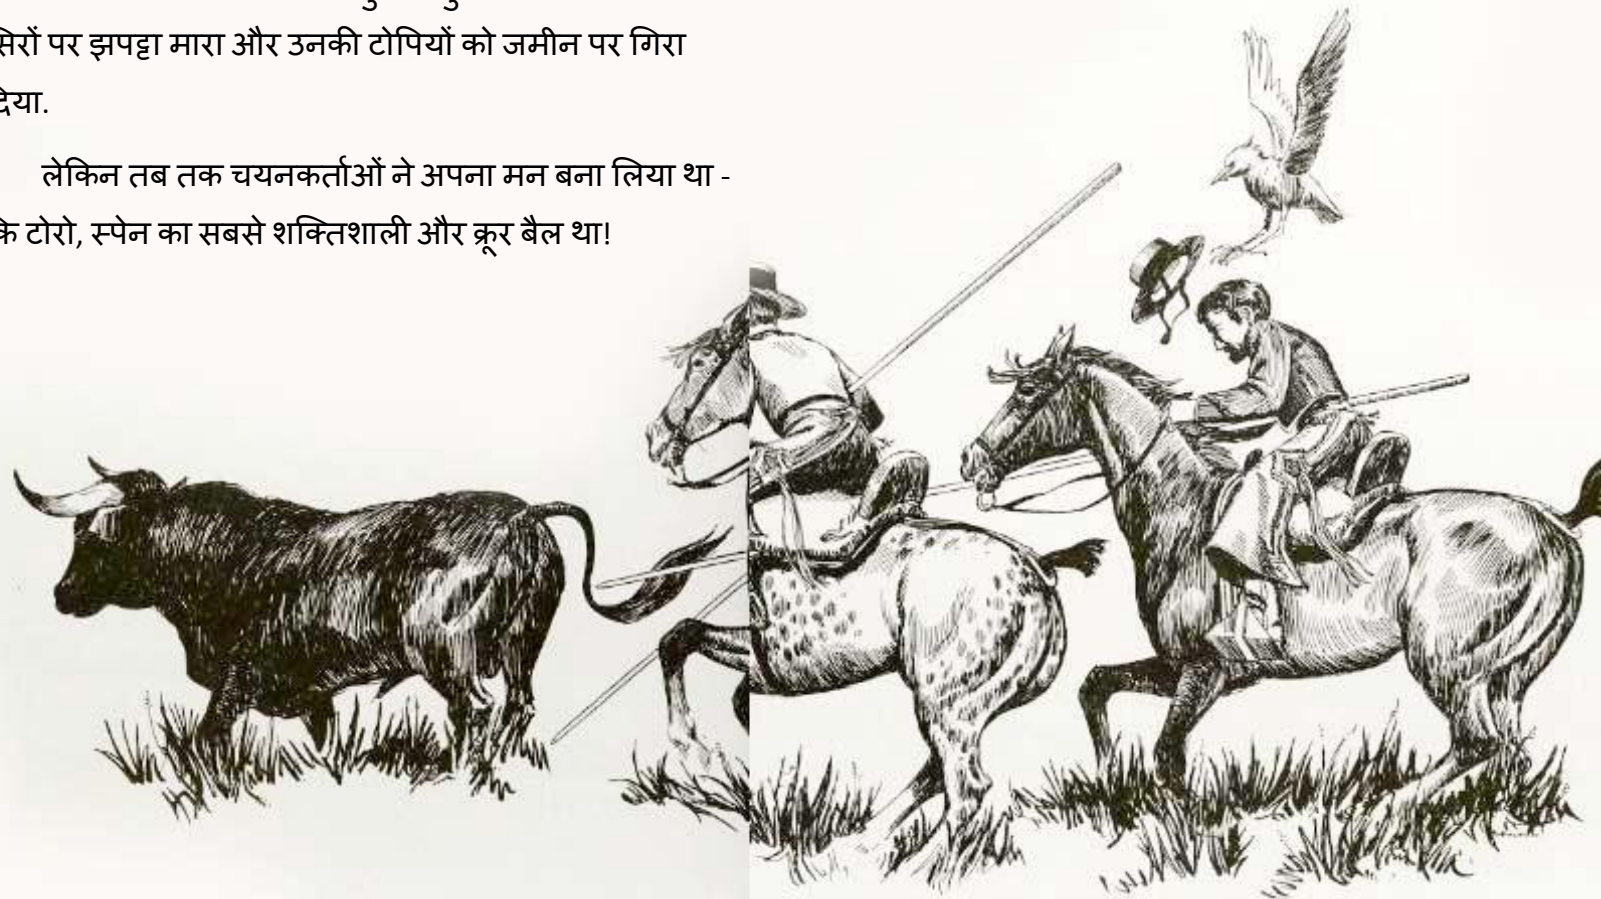 सिरों पर झपट्टा मारा और उनकी टोपियों को जमीन पर गिरा
दिया.
लेकिन तब तक चयनकर्ताओं ने अपना मन बना लिया था -
कि टोरो, स्पेन का सबसे शक्तिशाली और क्रूर बैल था!